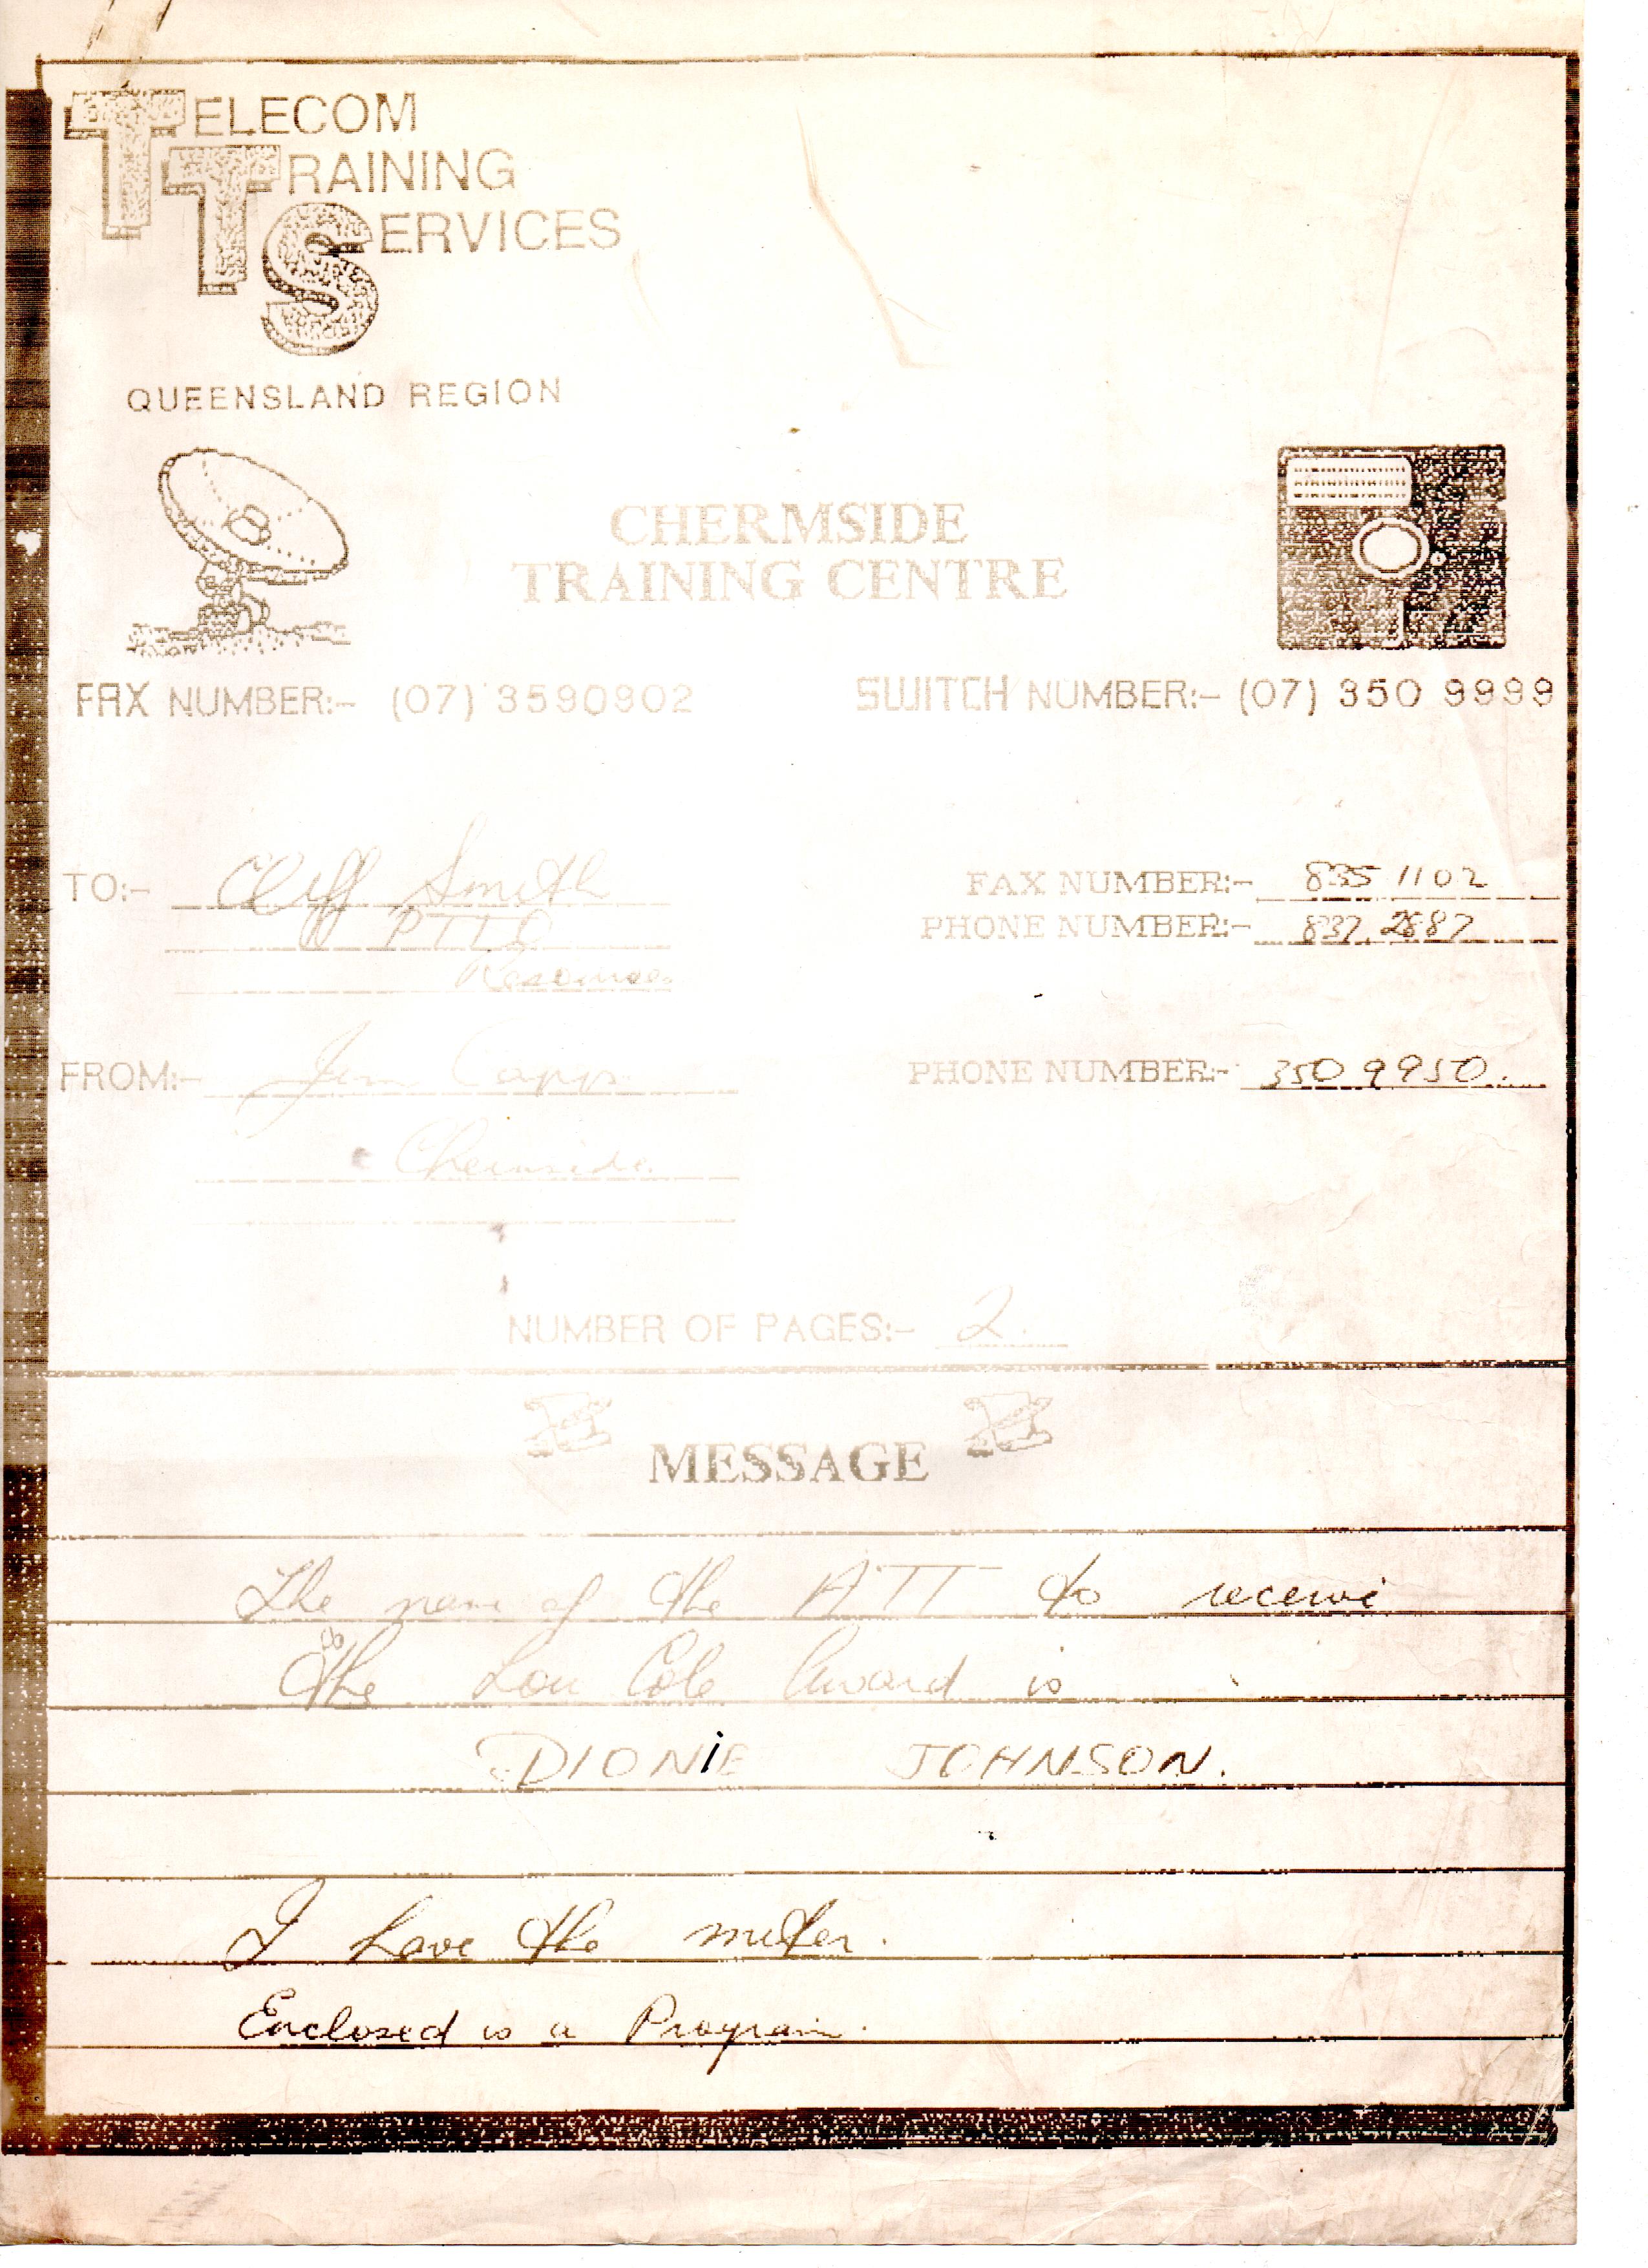 TELECOM
TRAINING
SERVICES
QUEENSLAND REGION
CHERMSIDE
TRAINING CENTRE
FAX NUMBER:- (07) 3590902
SWITCH NUMBER:- (07) 350 9999
TO:- Cliff Smith
FAX NUMBER:- 835 1102
PTTC
PHONE NUMBER:- 837 2887
Resources
FROM:- Jim Capp
PHONE NUMBER:- 350 9950.
Chermside.
NUMBER OF PAGES:- 2.
MESSAGE
The name of the ATT to receive
the Lou Cole Award is
DIONiE JOHNSON.
I have the meter.
Enclosed is a Program.